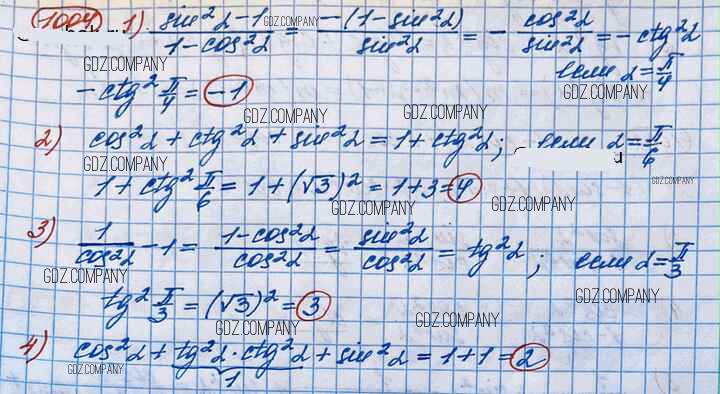 1004 1) sin²α-1 / 1-cos²α = -(1-sin²α) / sin²α = - cos²α / sin²α = -ctg²α
если α=π/4
-ctg² π/4 = -1
2) cos²α + ctg²α + sin²α = 1 + ctg²α; если α=π/6
1 + ctg² π/6 = 1 + (√3)² = 1+3=4
3) 1/cos²α - 1 = 1-cos²α / cos²α = sin²α / cos²α = tg²α; если α=π/3
tg² π/3 = (√3)² = 3
4) cos²α + tg²α · ctg²α + sin²α = 1+1 = 2
1
GDZ.COMPANY
GDZ.COMPANY
GDZ.COMPANY
GDZ.COMPANY
GDZ.COMPANY
GDZ.COMPANY
GDZ.COMPANY
GDZ.COMPANY
GDZ.COMPANY
GDZ.COMPANY
GDZ.COMPANY
GDZ.COMPANY
GDZ.COMPANY
GDZ.COMPANY